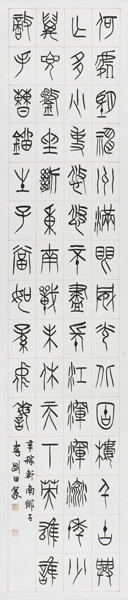 何處望神州滿眼風光北固樓千古興
亡多少事悠悠不盡長江渾渾流年少
萬兜鍪坐斷東南戰未休天下英雄誰
敵手曹劉生子當如孫仲謀
辛稼軒南鄉子
李剛田篆